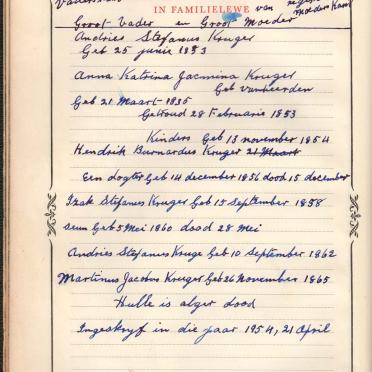 IN FAMILIELEWE van
Groot-Vader en Groot Moeder
Andries Stefanus Kruger
Geb 25 junie 1853
Anna Katrina Jacmina Kruger
Geb vanheerden
Geb 21 Maart 1835
Getroud 28 Februarie 1853
Kinders Geb 13 november 1854
Hendrik Burnardus Kruger 21 Maart
Een dogter Geb 14 december 1856 dood 15 december
Izak Stefanus Kruger Geb 15 September 1858
seun Geb 5 Mei 1860 dood 28 Mei
Andries Stefanus Kruge Geb 10 September 1862
Martinus Jacobus Kruger Geb 26 November 1865
Hulle is alger dood
Ingeskryf in die jaar 1954, 21 April